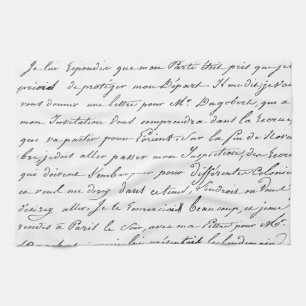 Je lui repondis que mon Parti était pris que je
priois de protéger mon Départ. Il me dis je vai
vous donner une lettre pour Mr. Dagobert, que a
mon Invitation vous comprendra dans la Recrue,
que va partir pour l'Orient. Sur la fin de Nove
bre, je dus aller passer mon Inspection, des Recrue
que doivent s'embarquer pour différentes Colonies
ce vous me direz dans ce tems, l'endroit ou vous
désirez aller. Je le remerciai Beaucoup, et je me
rendis à Paris le Soir, avec ma Lettre pour Mr.
lui présentai le lendemain